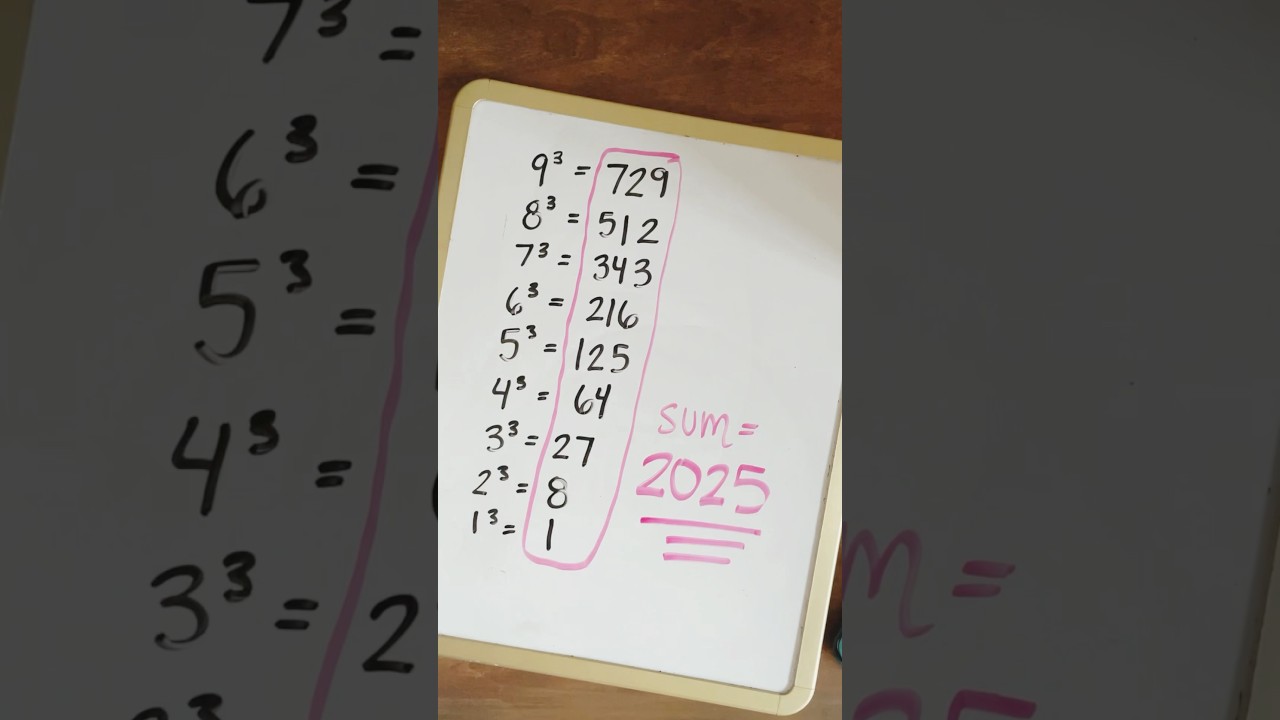 9³ = 729
8³ = 512
7³ = 343
6³ = 216
5³ = 125
4³ = 64
3³ = 27
2³ = 8
1³ = 1
sum =
2025